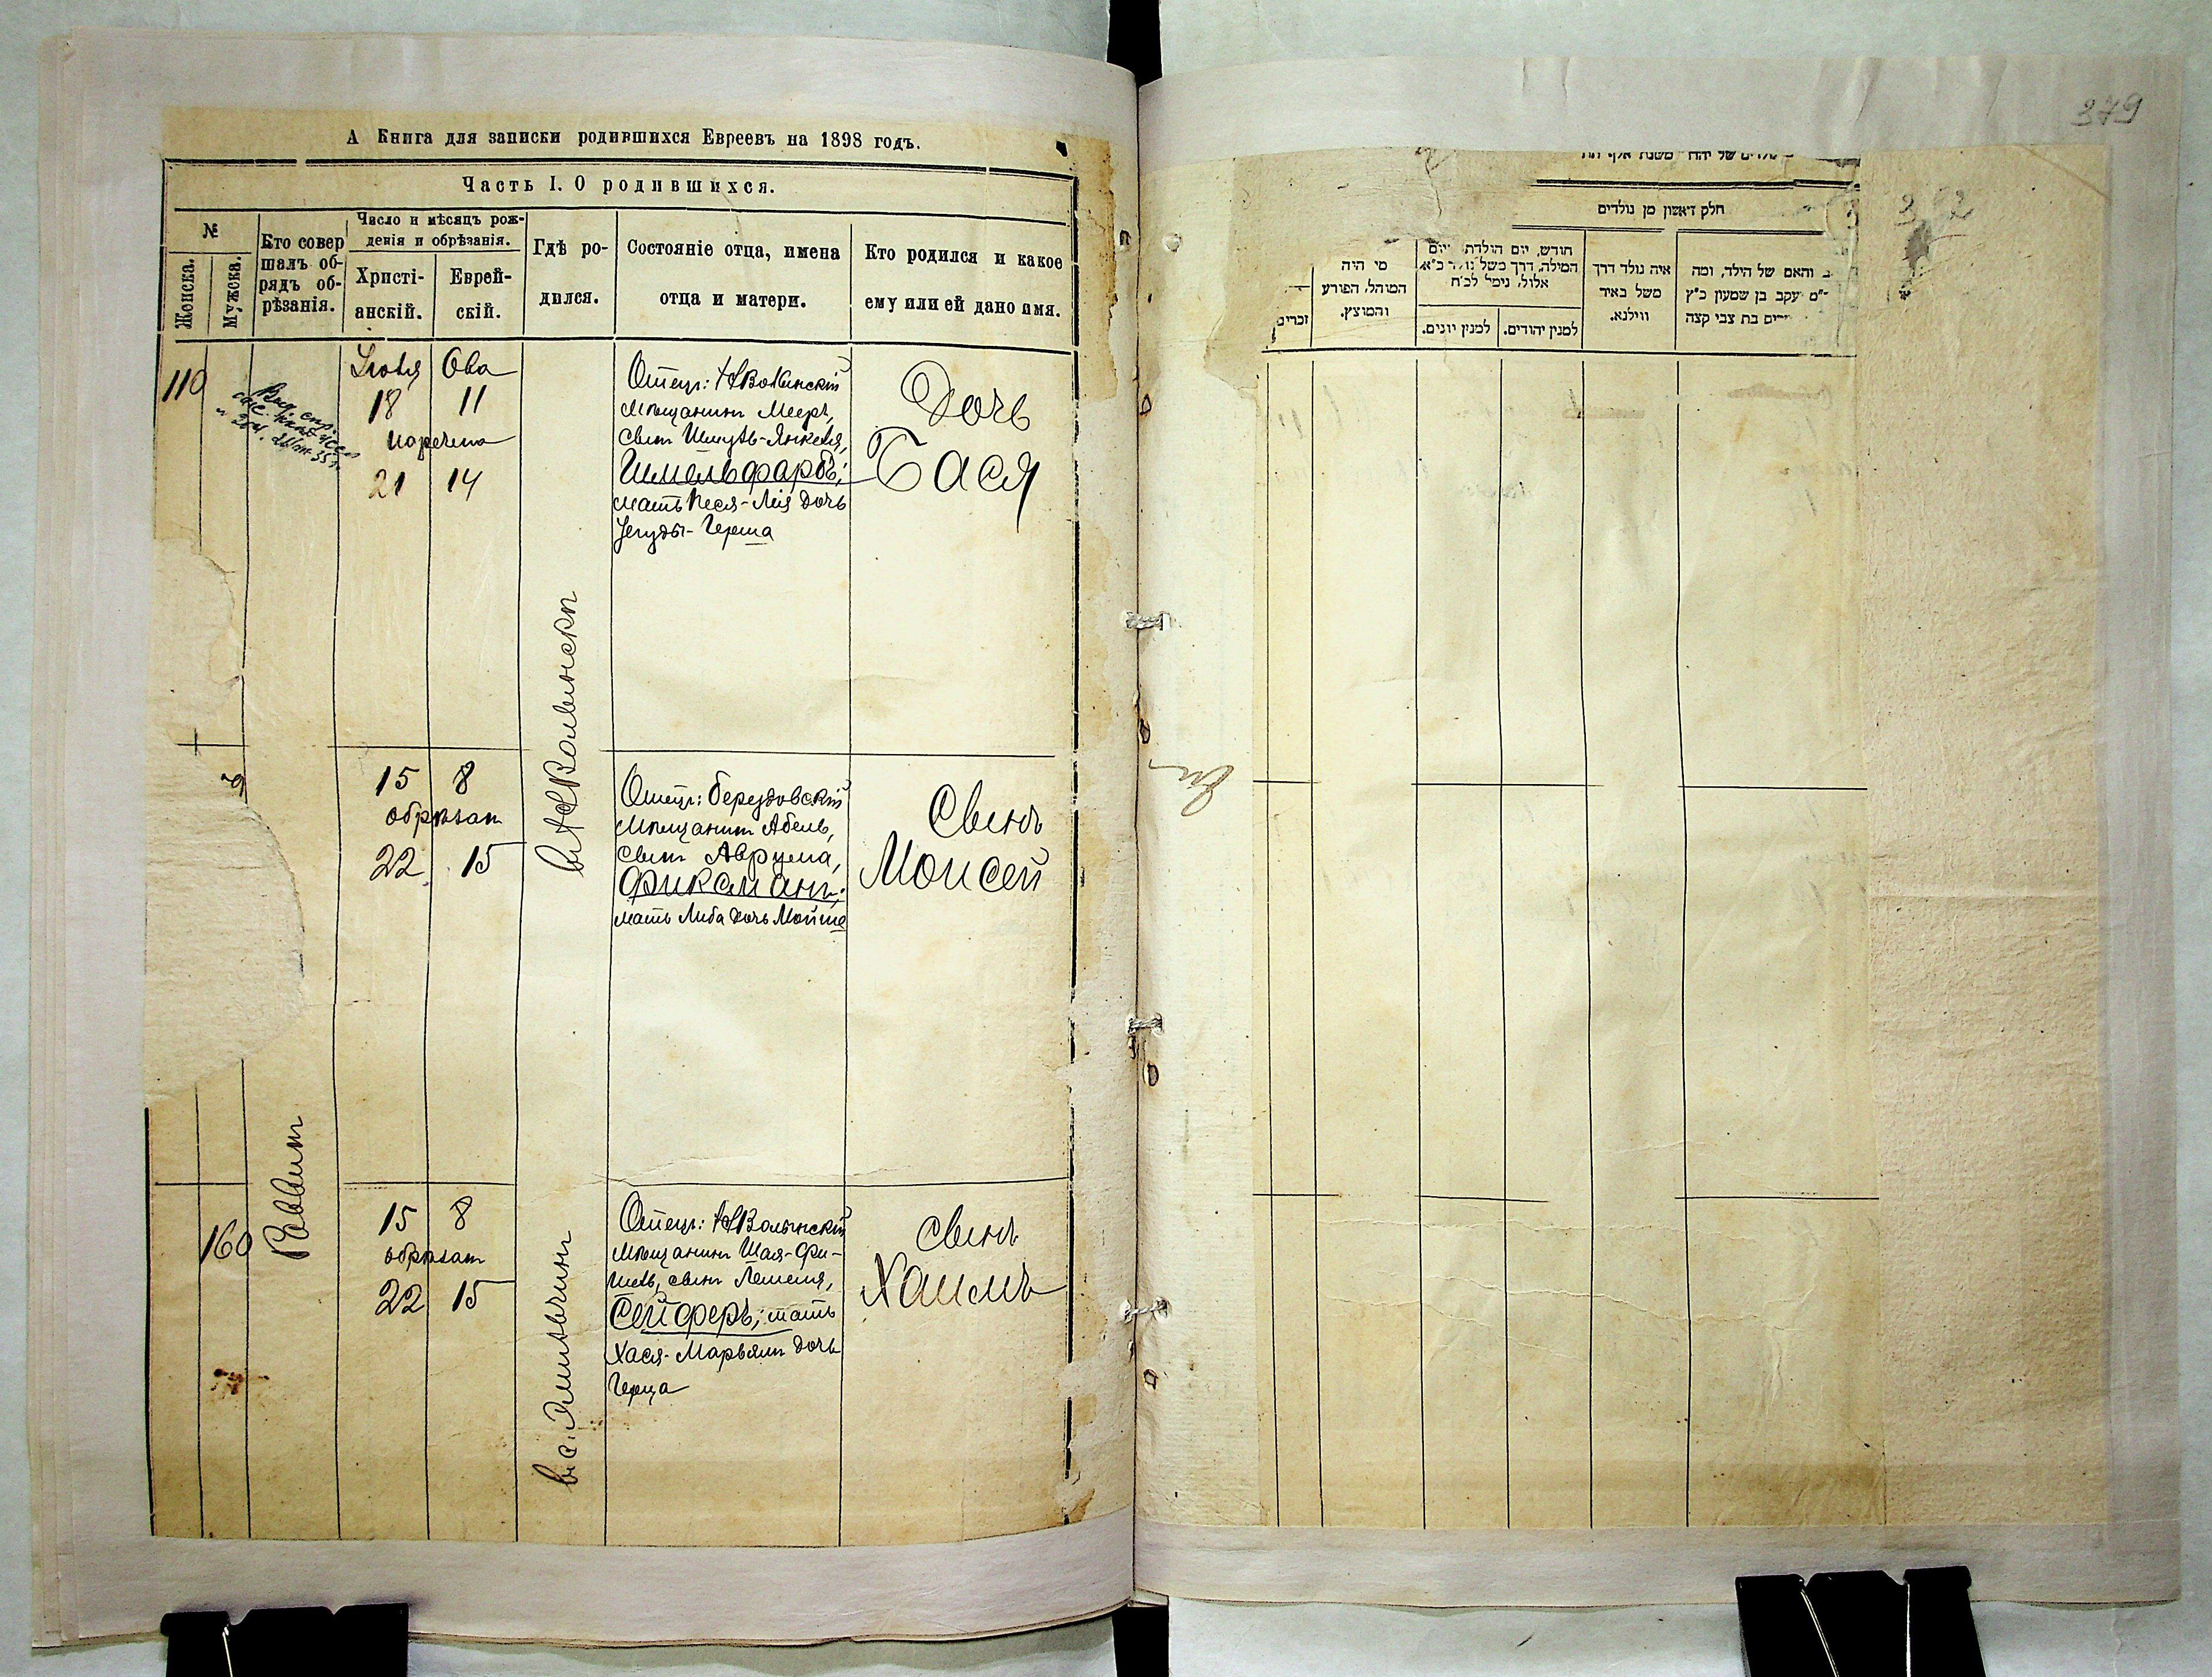 А Книга для записки родившихся Евреевъ на 1898 годъ.
Часть I. О родившихся.
№
Женска.
Мужска.
Кто совер
шалъ об-
рядъ об-
рѣзанія.
Число и мѣсяцъ рож-
денія и обрѣзанія.
Христі-
анскій.
Еврей-
скій.
Гдѣ ро-
дился.
Состояніе отца, имена
отца и матери.
Кто родился и какое
ему или ей дано имя.
110
Іюля Ова
18 11
наречена
21 14
Отецъ: НВолинскій
мѣщанинъ Мееръ,
сынъ Шмуль-Янкеля,
Шмельфарбъ;
мать Песя-Лія дочь
Іегуды-Герша
Дочь
Бася
въ НВолынскѣ
15 8
обрѣзан
22 15
Отецъ: Берездовскій
мѣщанинъ Абель,
сынъ Аврума,
Фиксманъ;
мать Либа дочь Мойше
Сынъ
Моисей
160
Раввинъ
15 8
обрѣзан
22 15
в с. Эмильчинѣ
Отецъ: НВолынскій
мѣщанинъ Шая-Фи-
шель, сынъ Лемеля,
Сейферъ; мать
Хася-Марьямъ дочь
Герца
Сынъ
Хаимъ
379
חלק ראשון מן נולדים
זכרים
מי היה
המוהל, הפורע
והמוצץ.
חודש, יום הולדת ויום
המילה, דרך משל נולד כ״א
אלול, נימל לכ״ח
למנין יונים.
למנין יהודים.
איה נולד דרך
משל באיר
ווילנא.
והאם של הילד, ומה
יעקב בן שמעון כ״ץ
בת צבי קצה